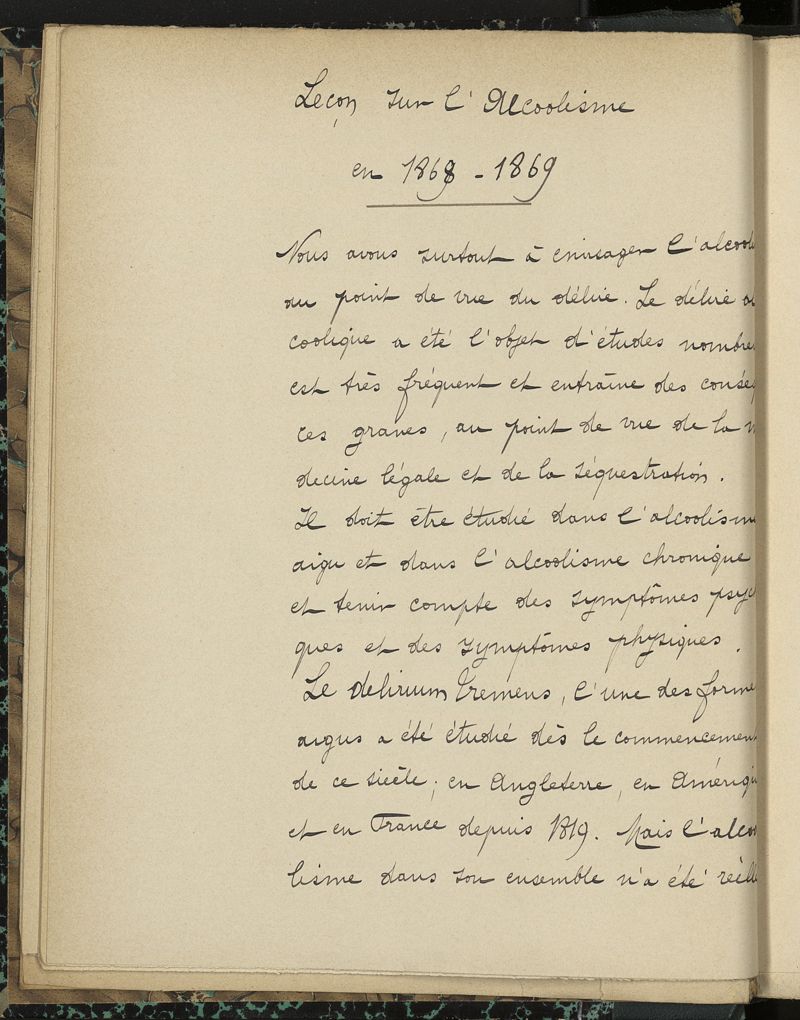 Leçon sur l'Alcoolisme
en 1868-1869
Nous avons surtout à envisager l'alcool
au point de vue du délire. Le délire al
coolique a été l'objet d'études nombre
est très fréquent et entraîne des consé
ces graves, au point de vue de la m
decine légale et de la séquestration.
Il doit être étudié dans l'alcoolism
aigu et dans l'alcoolisme chronique
et tenir compte des symptômes psyc
ques et des symptômes physiques.
Le delirium tremens, l'une des forme
aigus a été étudié dès le commencemen
de ce siècle; en Angleterre, en Amériqu
et en France depuis 1819. Mais l'alcoo
lisme dans son ensemble n'a été réell